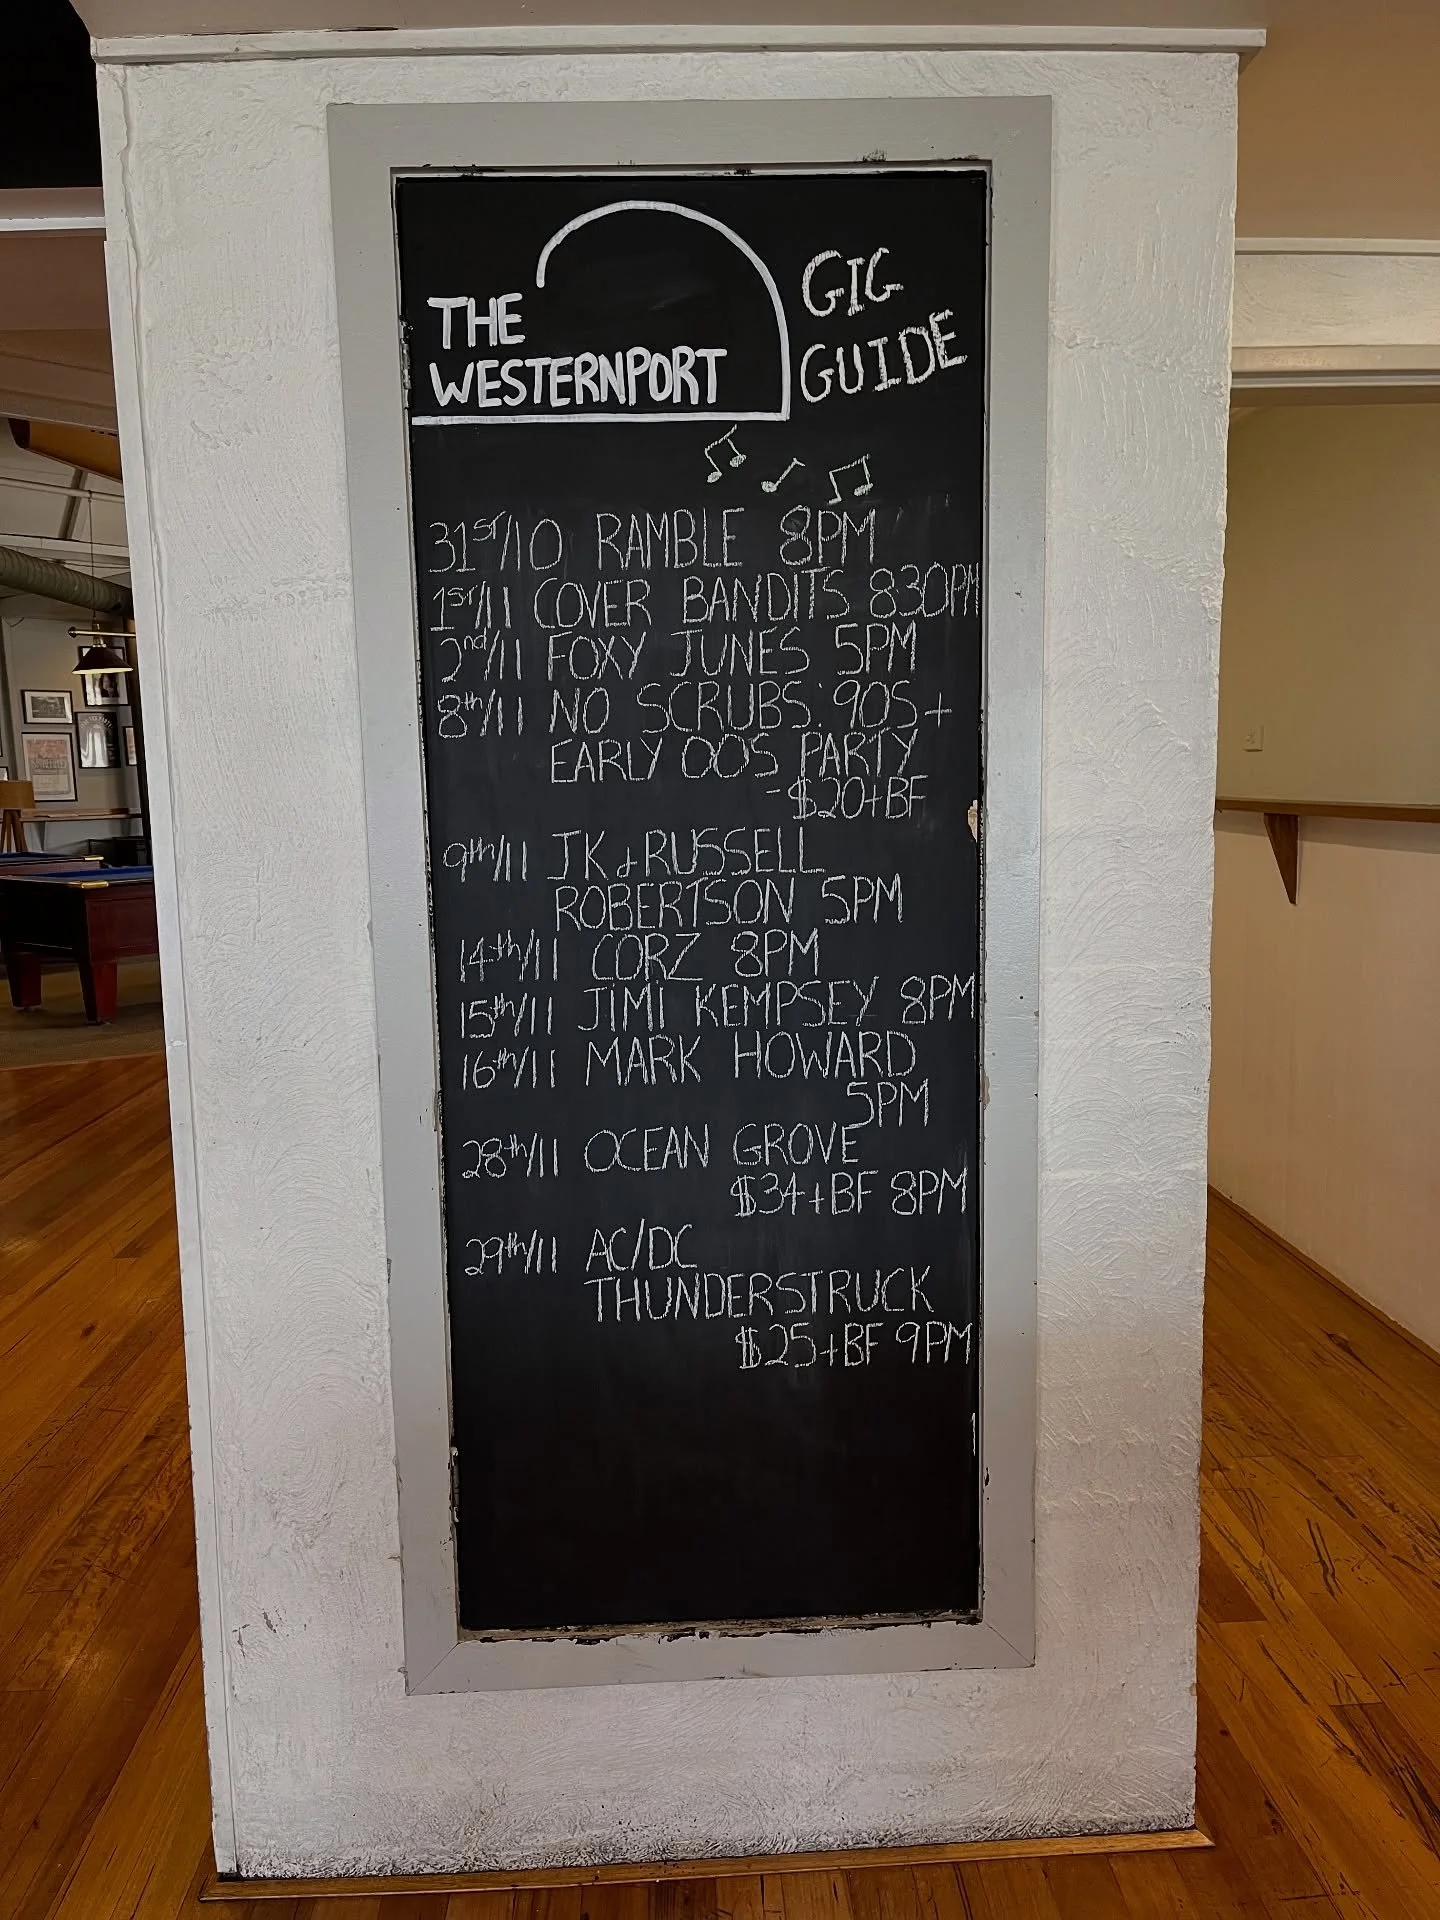 THE
WESTERNPORT
GIG
GUIDE
31ST/10 RAMBLE 8PM
1ST/11 COVER BANDITS 830PM
2nd/11 FOXY JUNES 5PM
8th/11 NO SCRUBS: 90S+
EARLY 00S PARTY
-$20+BF
9th/11 JK & RUSSELL
ROBERTSON 5PM
14th/11 CORZ 8PM
15th/11 JIMI KEMPSEY 8PM
16th/11 MARK HOWARD
5PM
28th/11 OCEAN GROVE
$34+BF 8PM
29th/11 AC/DC
THUNDERSTRUCK
$25+BF 9PM